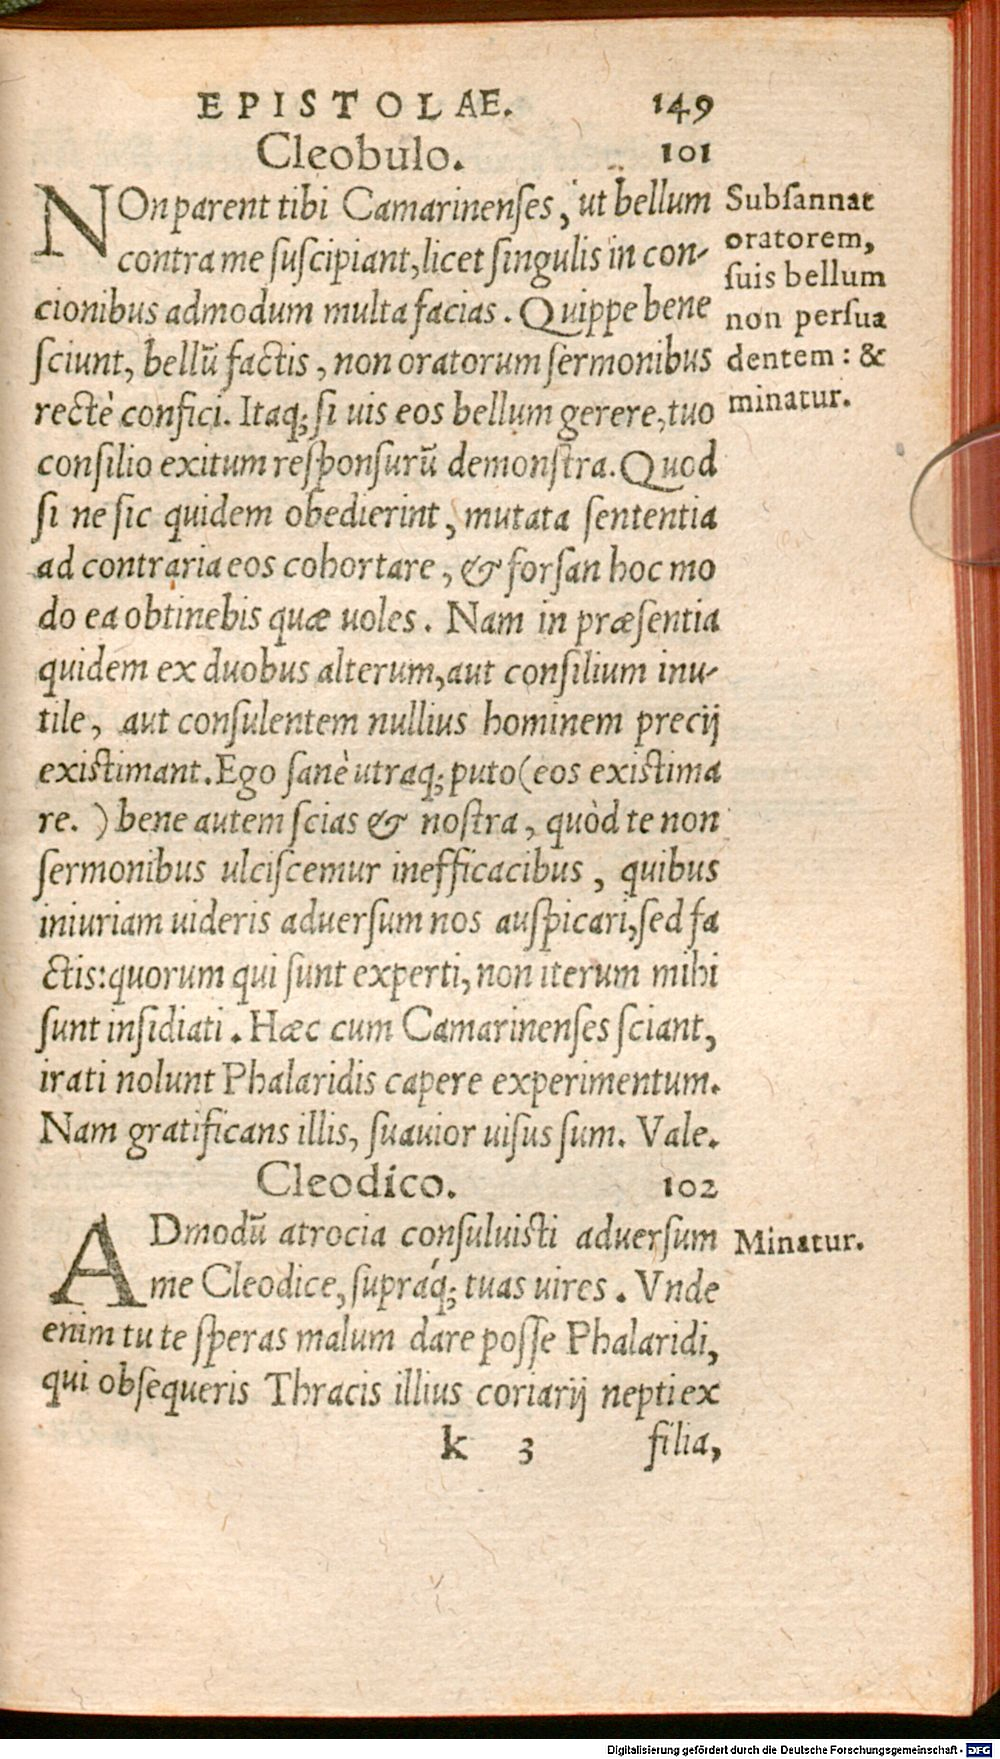 EPISTOLAE. 149
Cleobulo. 101
NOn parent tibi Camarinenses, ut bellum
contra me suscipiant, licet singulis in con-
cionibus admodum multa facias. Quippe bene
sciunt, bellū factis, non oratorum sermonibus
rectè confici. Itaq; si uis eos bellum gerere, tuo
consilio exitum responsurū demonstra. Quod
si ne sic quidem obedierint, mutata sententia
ad contraria eos cohortare, & forsan hoc mo
do ea obtinebis quæ uoles. Nam in præsentia
quidem ex duobus alterum, aut consilium inu-
tile, aut consulentem nullius hominem precij
existimant. Ego sanè utraq; puto (eos existima
re.) bene autem scias & nostra, quòd te non
sermonibus ulciscemur inefficacibus, quibus
iniuriam uideris aduersum nos auspicari, sed fa
ctis: quorum qui sunt experti, non iterum mihi
sunt insidiati. Hæc cum Camarinenses sciant,
irati nolunt Phalaridis capere experimentum.
Nam gratificans illis, suauior uisus sum. Vale.
Subsannat
oratorem,
suis bellum
non persua
dentem: &
minatur.
Cleodico. 102
ADmodū atrocia consuluisti aduersum
me Cleodice, supráq; tuas uires. Vnde
enim tu te speras malum dare posse Phalaridi,
qui obsequeris Thracis illius coriarij nepti ex
Minatur.
k 3 filia,
Digitalisierung gefördert durch die Deutsche Forschungsgemeinschaft - DFG